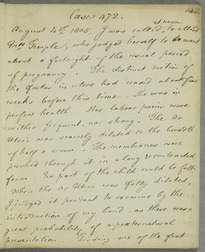 143.
Case 472.
at noon
August 4th 1808. I was called, to attend
Mrs Temple, who judged herself to be near
about a fortnight of the usual period
of pregnancy. The distinct motion of
the foetus in utero had ceased about four
weeks before this time. She was in
perfect health. Her labour pains were
neither frequent nor strong. The Os
Uteri was scarcely dilated to the breadth
of half a crown. The membranes were
pushed through it in a long &
form. No part of the child could be felt.
When the os Uteri was fully dilated,
I judged it prudent to examine by the
introduction of my hand, as there was a
great probability of a preternatural
presentation. Finding one of the feet